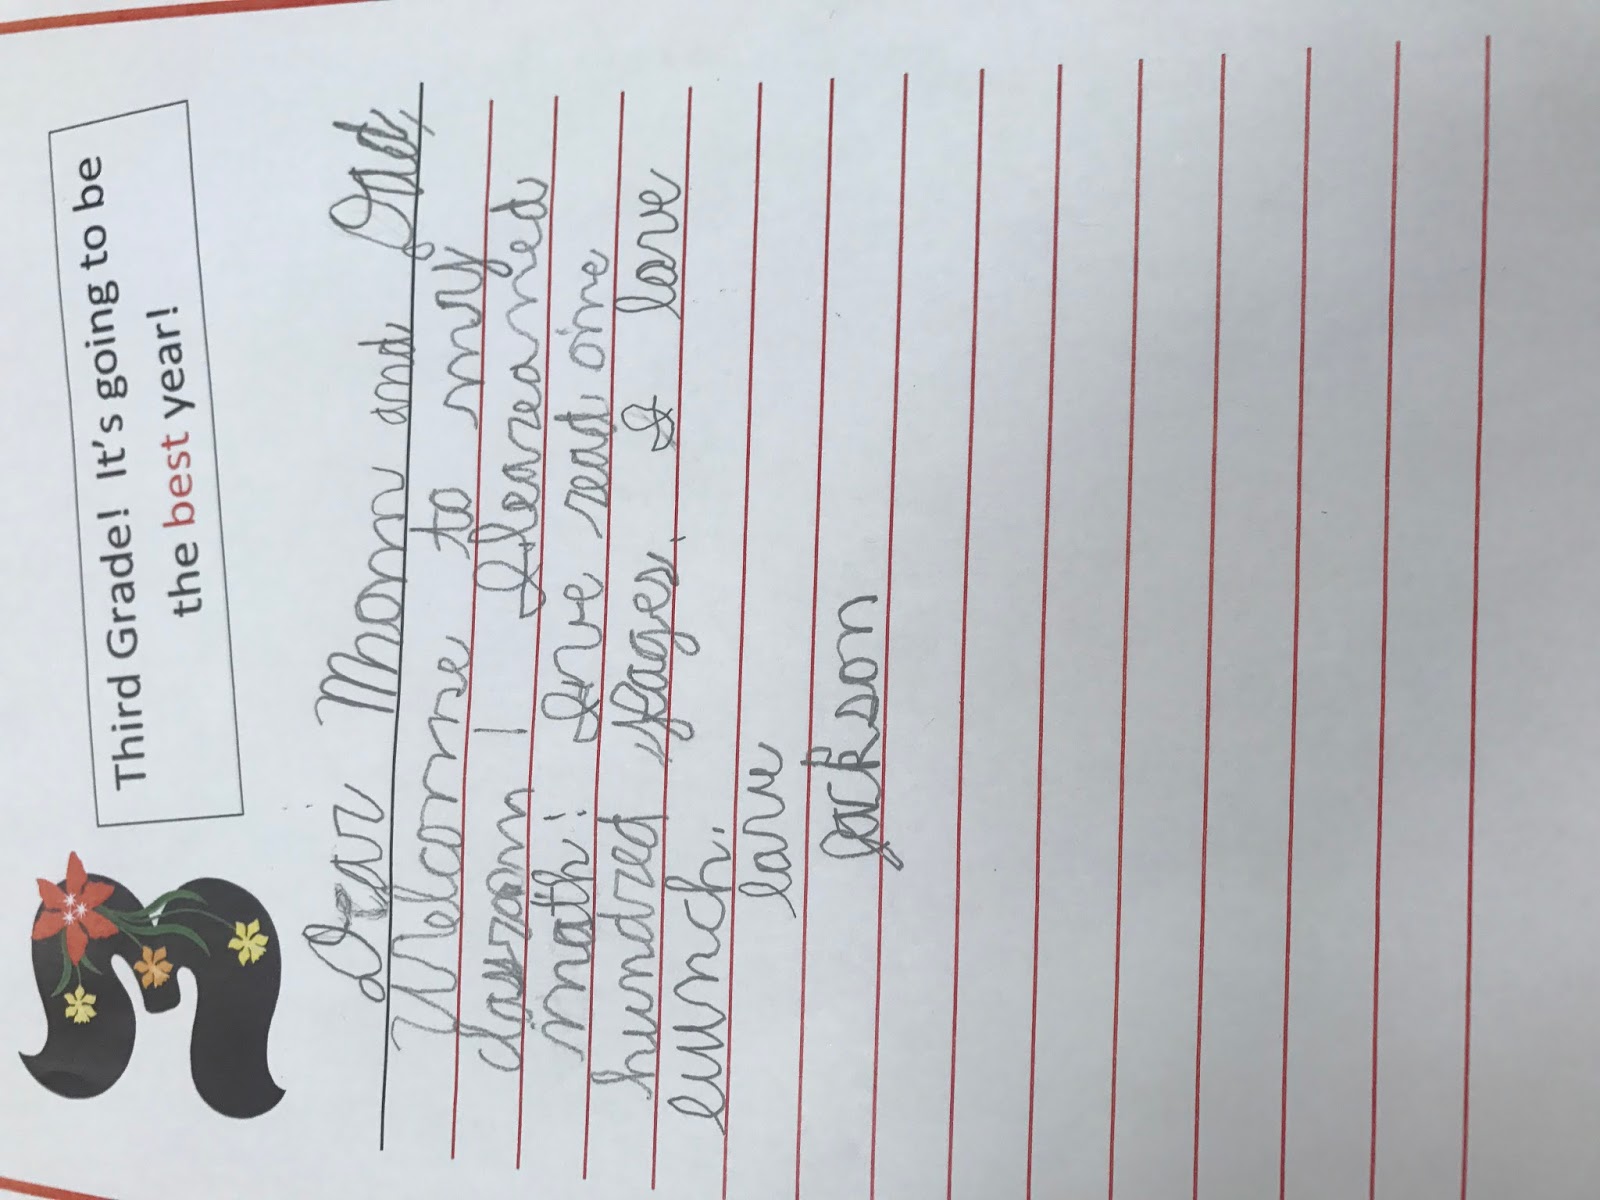 Third Grade! It's going to be
the best year!
Dear Mom and Dad,
Welcome to my
classroom! I leareaned
math! Ive read one
hundred pages. I love
lunch.
love
Jackson